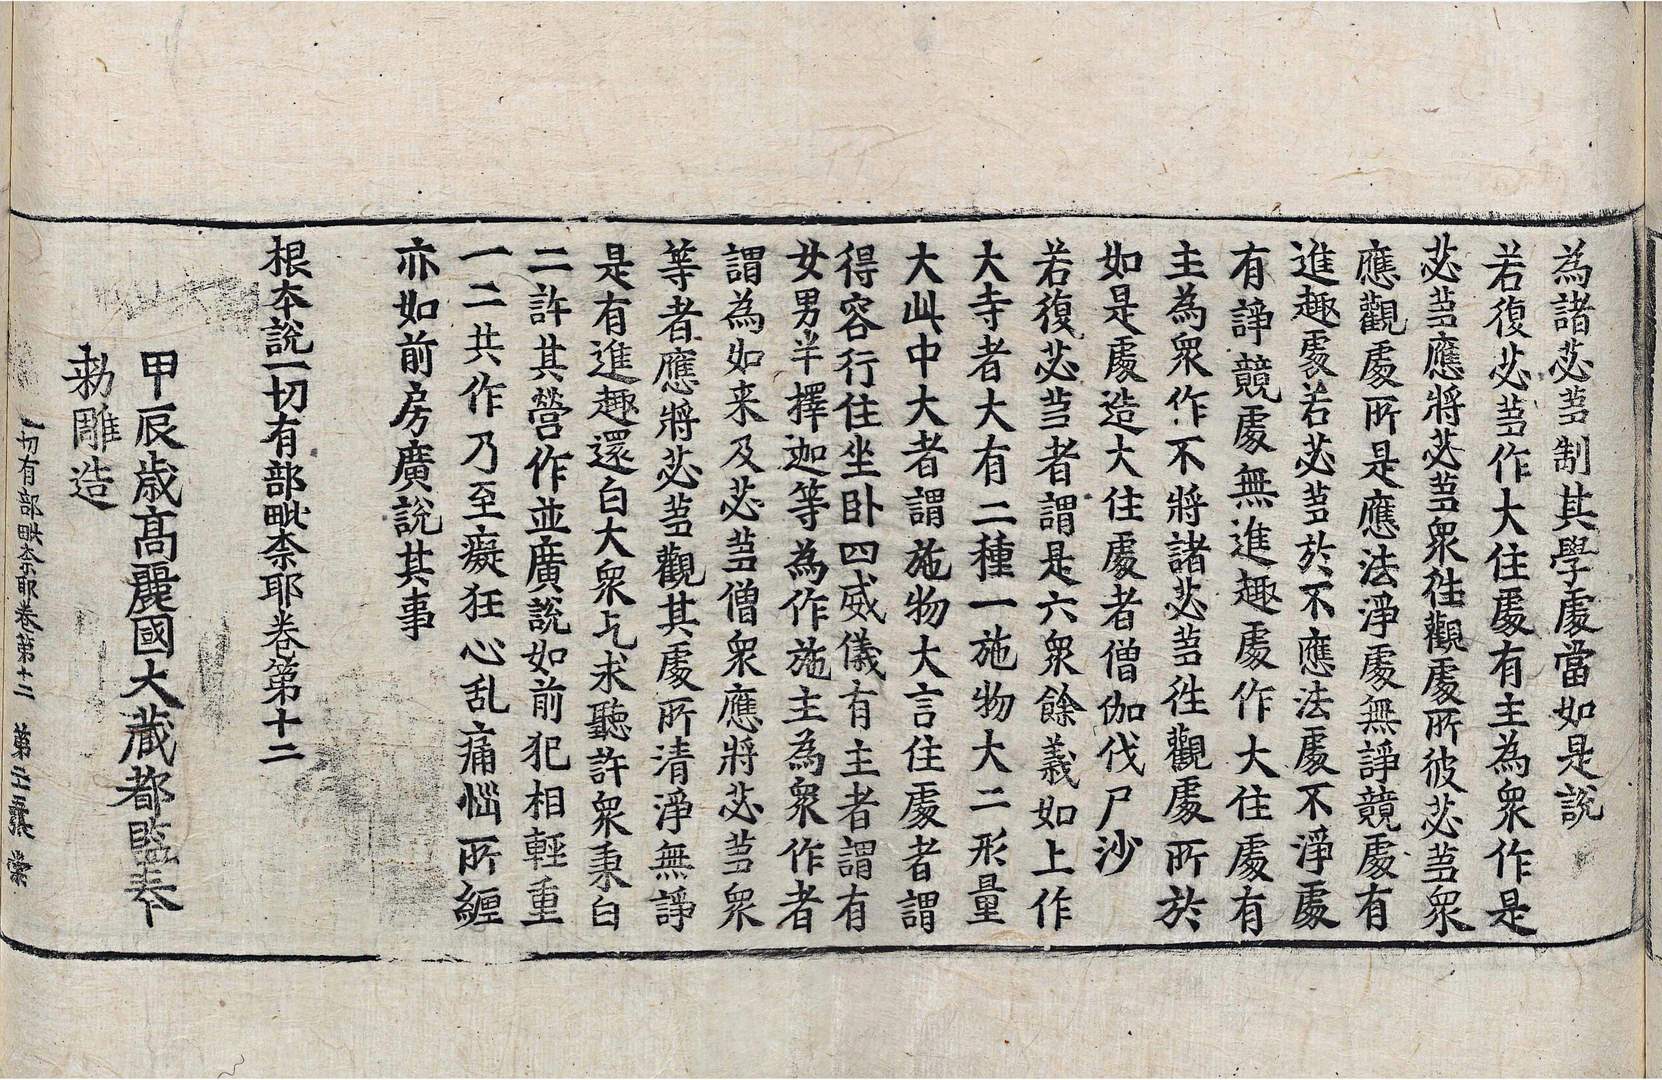 為諸苾芻制其學處當如是說
若復苾芻作大住處有主為衆作是
苾芻應將苾芻衆徃觀處所彼苾芻衆
應觀處所是應法淨處無諍競處有
進趣處若苾芻於不應法處不淨處
有諍競處無進趣處作大住處有
主為衆作不將諸苾芻徃觀處所於
如是處造大住處者僧伽伐尸沙
若復苾芻者謂是六衆餘義如上作
大寺者大有二種一施物大二形量
大此中大者謂施物大言住處者謂
得容行住坐卧四威儀有主者謂有
女男半擇迦等為作施主為衆作者
謂為如来及苾芻僧衆應將苾芻衆
等者應將苾芻觀其處所清淨無諍
是有進趣還白大衆乞求聽許衆秉白
二許其營作並廣說如前犯相輕重
一二共作乃至癡狂心乱痛惱所纏
亦如前房廣說其事
根本說一切有部毗柰耶卷第十二
甲辰歲高麗國大藏都監奉
勑雕造
一切有部毗柰耶卷第十二 第二十二張 棠